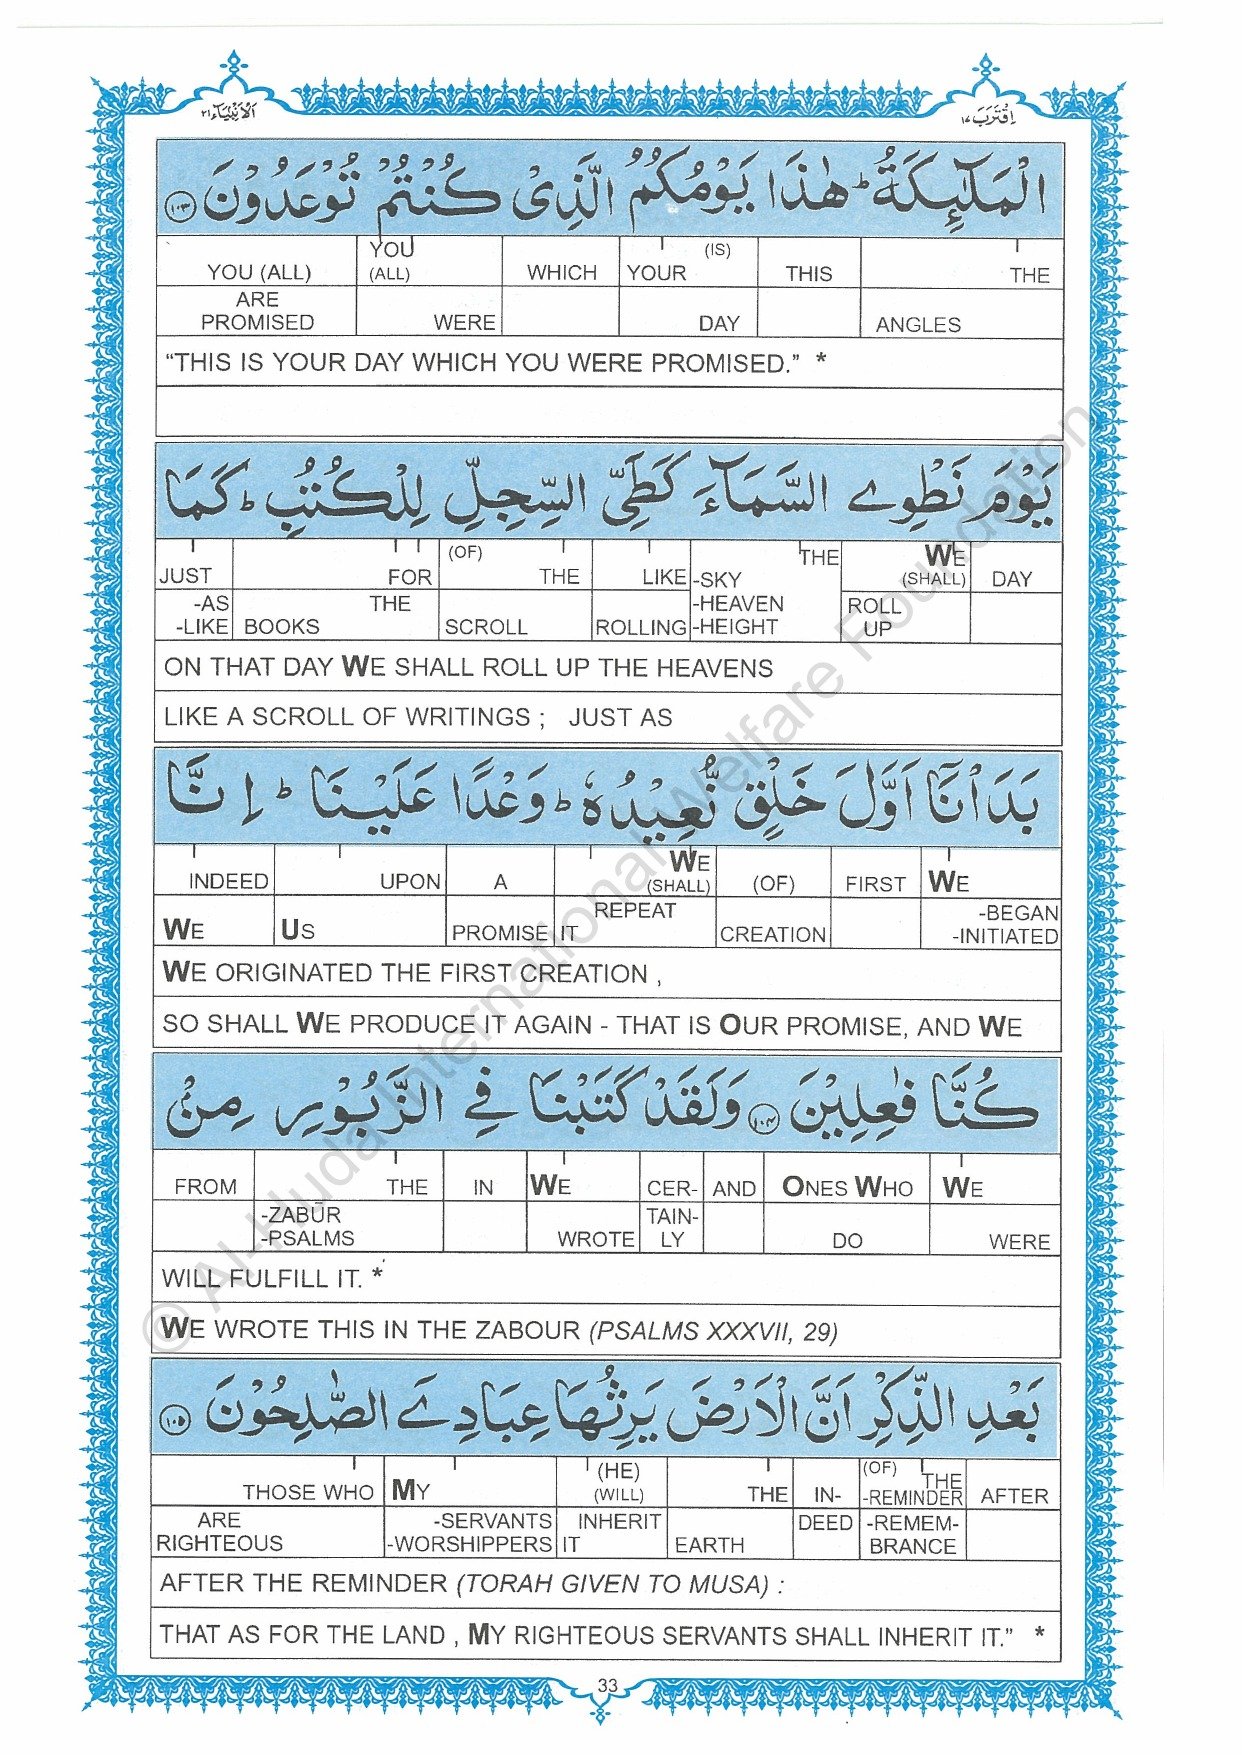 اَلْاَنْۢبِيَآء٢١ اِقْتَرَبَ ١٧
الْمَلٰٓئِكَةُ ؕ هٰذَا يَوْمُكُمُ الَّذِىْ كُنْتُمْ تُوْعَدُوْنَ ١٠٣
YOU (ALL) YOU (ALL) WHICH YOUR (IS) THIS THE
ARE PROMISED WERE DAY ANGLES
“THIS IS YOUR DAY WHICH YOU WERE PROMISED.” *
يَوْمَ نَطْوِے السَّمَآءَ كَطَىِّ السِّجِلِّ لِلْكُتُبِ ؕ كَمَا
JUST FOR (OF) THE LIKE THE WE (SHALL) DAY
-AS -LIKE THE BOOKS SCROLL ROLLING -SKY -HEAVEN -HEIGHT ROLL UP
ON THAT DAY WE SHALL ROLL UP THE HEAVENS
LIKE A SCROLL OF WRITINGS ; JUST AS
بَدَاْنَآ اَوَّلَ خَلْقٍ نُّعِيْدُهٗ ؕ وَعْدًا عَلَيْنَا ؕ اِنَّا
INDEED UPON A WE (SHALL) (OF) FIRST WE
WE US PROMISE REPEAT IT CREATION -BEGAN -INITIATED
WE ORIGINATED THE FIRST CREATION ,
SO SHALL WE PRODUCE IT AGAIN - THAT IS OUR PROMISE, AND WE
كُنَّا فٰعِلِيْنَ ١٠٤ وَلَقَدْ كَتَبْنَا فِے الزَّبُوْرِ مِنْۢ
FROM THE IN WE CER- AND ONES WHO WE
-ZABŪR -PSALMS WROTE TAIN- LY DO WERE
WILL FULFILL IT. *
WE WROTE THIS IN THE ZABOUR (PSALMS XXXVII, 29)
بَعْدِ الذِّكْرِ اَنَّ الْاَرْضَ يَرِثُهَا عِبَادِےَ الصّٰلِحُوْنَ ١٠٥
THOSE WHO MY (HE) (WILL) THE IN- (OF) THE -REMINDER AFTER
ARE RIGHTEOUS -SERVANTS -WORSHIPPERS INHERIT IT EARTH DEED -REMEM- BRANCE
AFTER THE REMINDER (TORAH GIVEN TO MUSA) :
THAT AS FOR THE LAND , MY RIGHTEOUS SERVANTS SHALL INHERIT IT.” *
33
© Al-Huda International Welfare Foundation